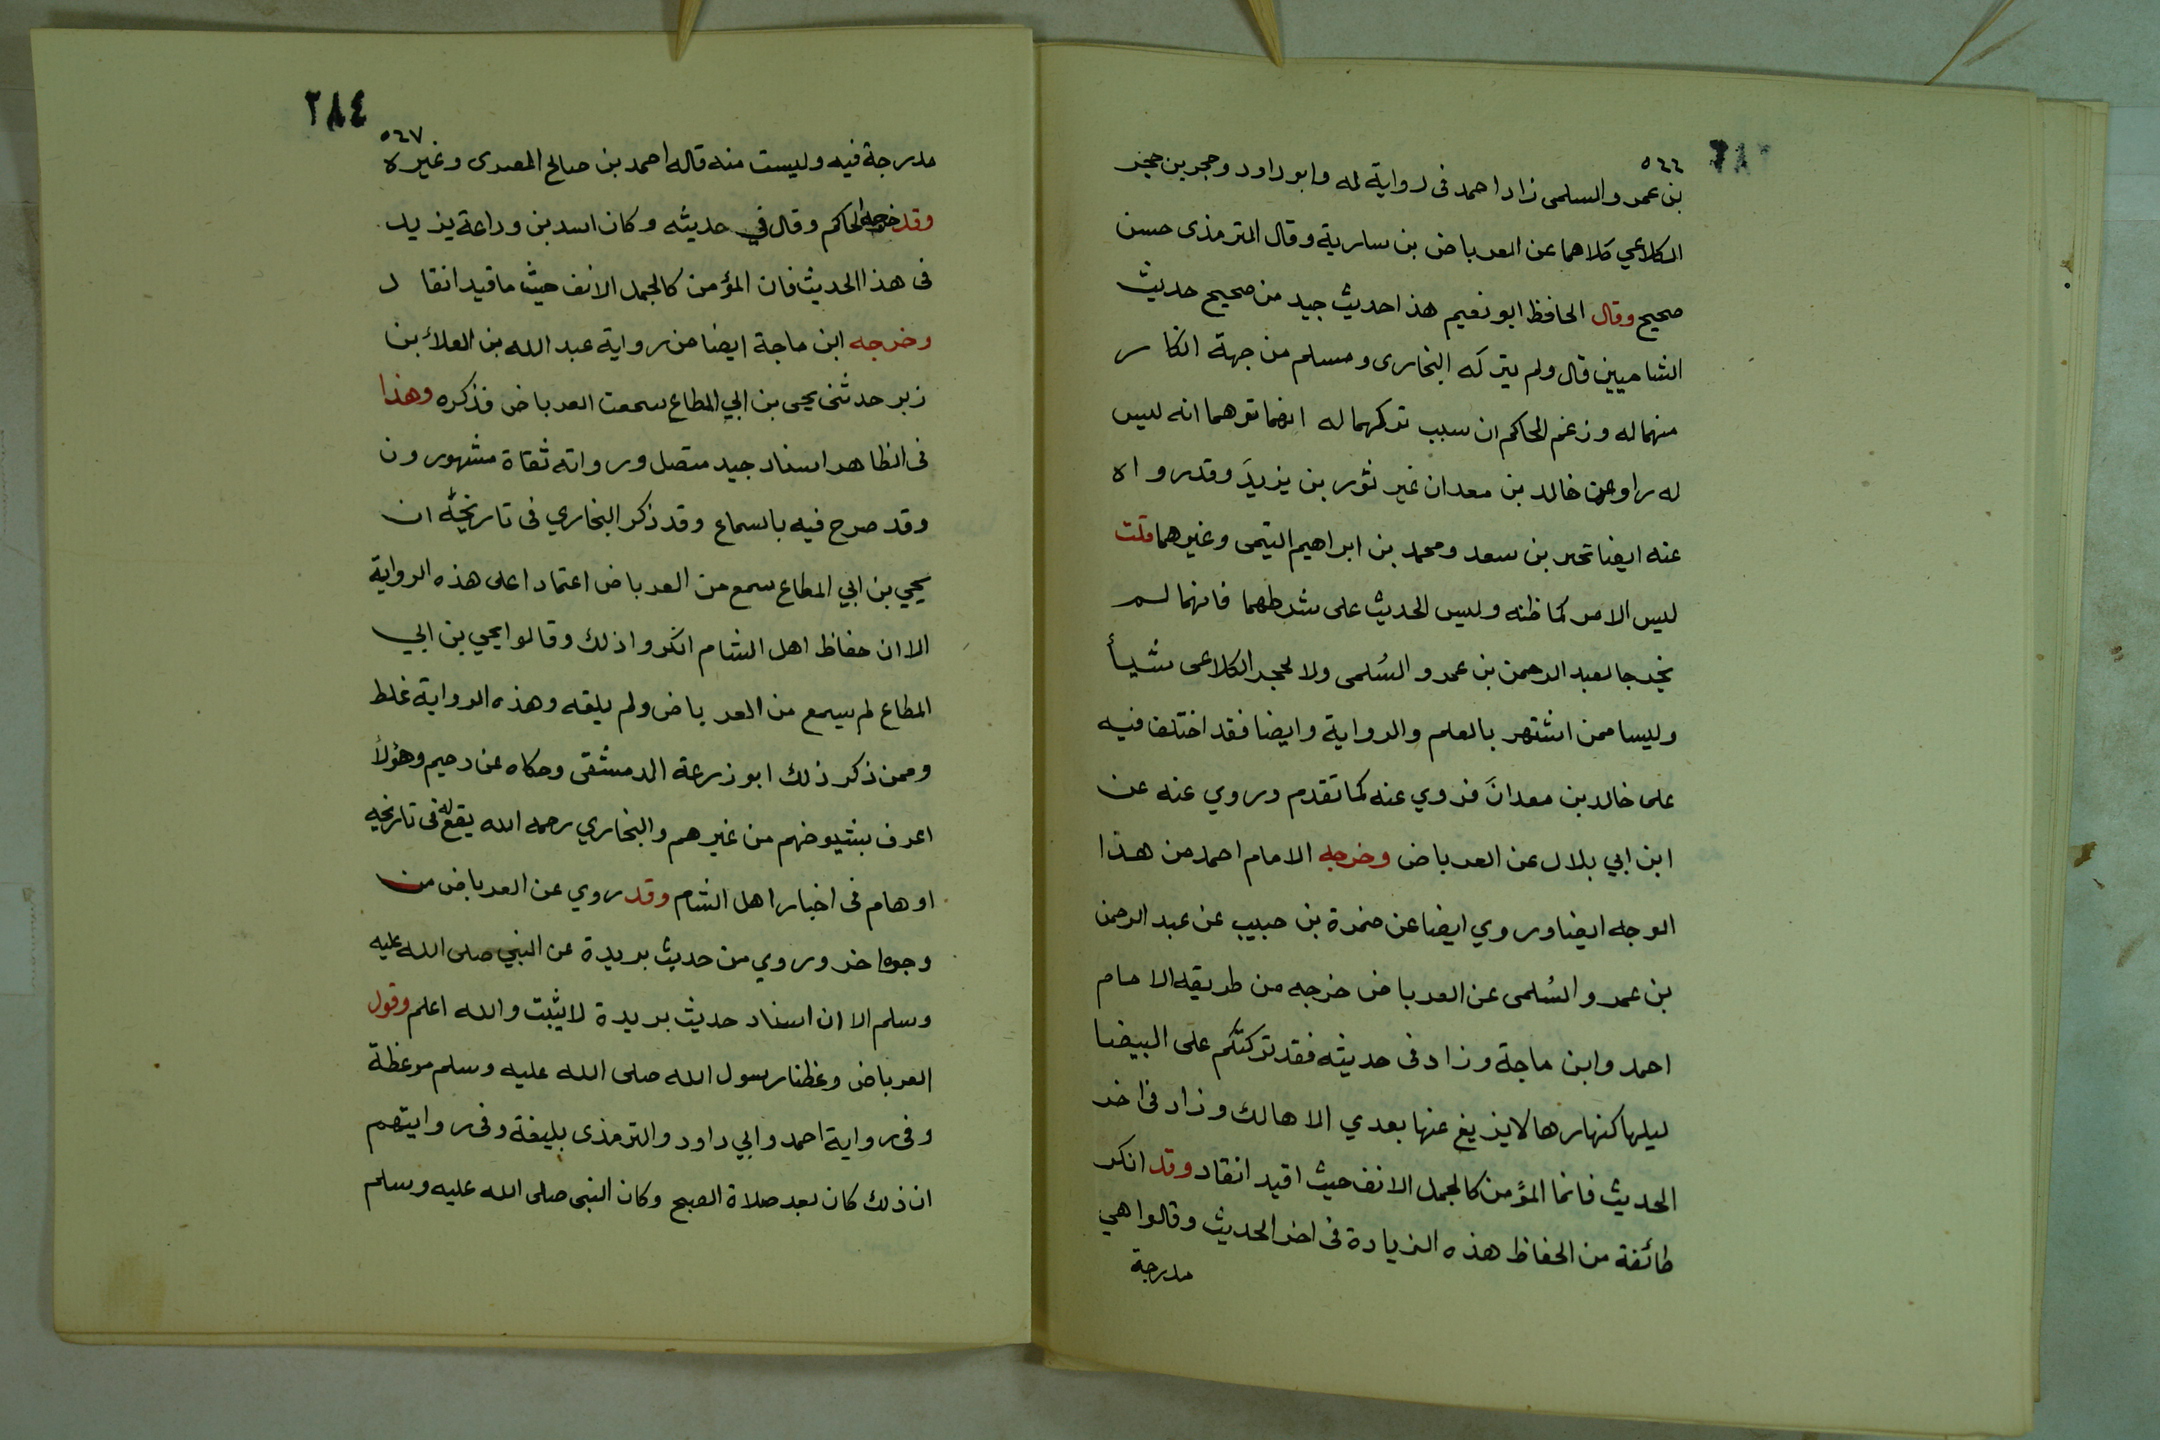 ٥٤٤
بن عمرو السلمى زاد احمد فى رواية له وابو داود وحجر بن حجر
الكلاعي كلاهما عن العرباض بن سارية وقال الترمذى حسن
صحيح وقال الحافظ ابو نعيم هذا حديث جيد من صحيح حديث
الشاميين قال ولم يتركه البخارى ومسلم من جهة انكار
منهما له وزعم الحاكم ان سبب تركهما له انهما توهما انه ليس
له راو عن خالد بن معدان غير ثور بن يزيدَ وقد رواه
عنه ايضا بحير بن سعد ومحمد بن ابراهيم التيمى وغيرهما قلت
ليس الامر كما ظنه وليس الحديث على شرطهما فانهما لم
يخرجا لعبد الرحمن بن عمرو السُلمى ولا لحجر الكلاعى شيأ
وليسا ممن اشتهر بالعلم والرواية وايضا فقد اختلف فيه
على خالد بن معدانَ فروي عنه كما تقدم وروي عنه عن
ابن ابي بلال عن العرباض وخرجه الامام احمد من هذا
الوجه ايضا وروي ايضا عن ضمرة بن حبيب عن عبد الرحمن
بن عمرو السُلمى عن العرباض خرجه من طريقه الامام
احمد وابن ماجة وزاد فى حديثه فقد تركتكم على البيضا
ليلها كنهارها لا يزيغ عنها بعدي الا هالك وزاد فى اخر
الحديث فانما المؤمن كالجمل الانف حيث اقيد انقاد وقد انكر
طائفة من الحفاظ هذه الزيادة فى اخر الحديث وقالوا هي
مدرجة
٢٨٤
٥٤٧
مدرجة فيه وليست منه قاله احمد بن صالح المصرى وغيره
وقد خرجه الحاكم وقال في حديثه وكان اسد بن وداعة يزيد
فى هذا الحديث فان المؤمن كالجمل الانف حيث ما قيد انقاد
وخرجه ابن ماجة ايضا من رواية عبد الله بن العلاء بن
زبر حدثنى يحيى بن ابي المطاع سمعت العرباض فذكره وهذا
فى الظاهر اسناد جيد متصل ورواته ثقاة مشهورون
وقد صرح فيه بالسماع وقد ذكر البخاري فى تاريخه ان
يحيي بن ابي المطاع سمع من العرباض اعتمادا على هذه الرواية
الا ان حفاظ اهل الشام انكروا ذلك وقالوا يحيي بن ابي
المطاع لم يسمع من العرباض ولم يلقه وهذه الرواية غلط
وممن ذكر ذلك ابو زرعة الدمشقى وحكاه عن دحيم وهؤلاء
اعرف بشيوخهم من غيرهم والبخاري رحمه الله يقع له فى تاريخه
اوهام فى اخبار اهل الشام وقد روي عن العرباض من
وجوه اخر وروي من حديث بريدة عن النبي صلى الله عليه
وسلم الا ان اسناد حديث بريدة لا يثبت والله اعلم وقول
العرباض وعظنا رسول الله صلى الله عليه وسلم موعظة
وفى رواية احمد وابي داود والترمذى بليغة وفى روايتهم
ان ذلك كان بعد صلاة الصبح وكان النبى صلى الله عليه وسلم